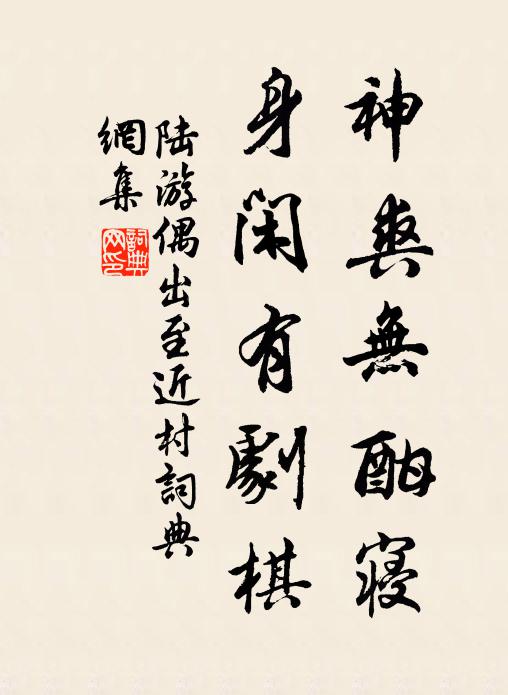 神爽無酣寝
身閑有劇棋
陆游偶出至近村詞典
網集
詞典
网印